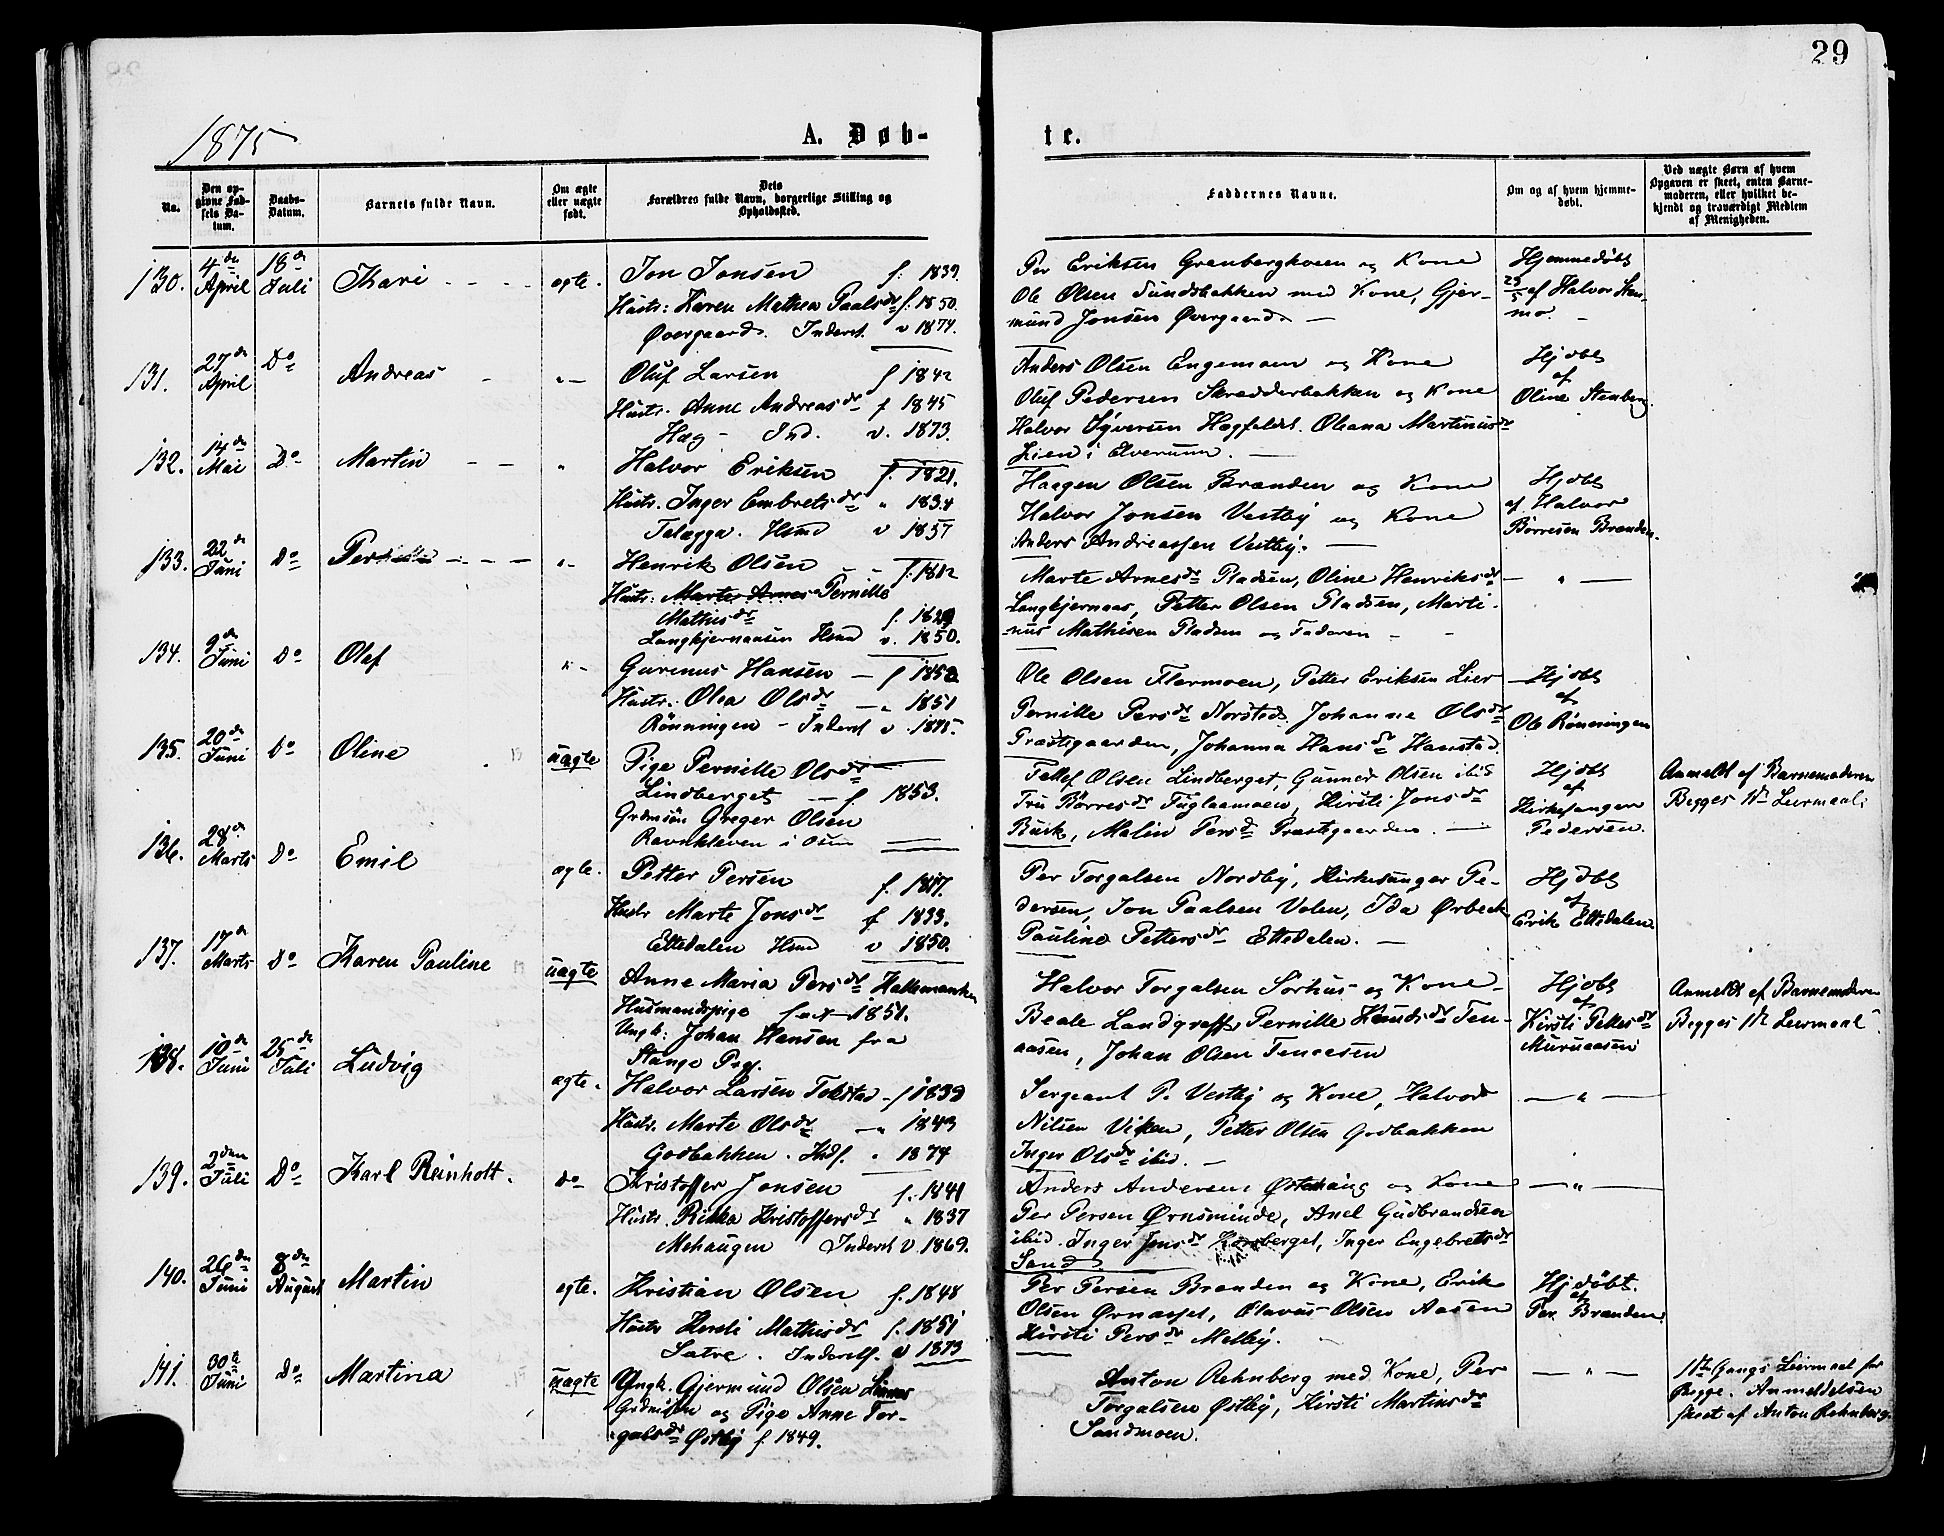 29
1875
A. Døb-
te.
No.
Den op-
givne Fød-
sels Da-
tum.
Daabs-
Datum.
Barnets fulde Navn.
Om ægte
eller uægte
født.
Dets
Forældres fulde Navn, borgerlige Stilling og
Opholdssted.
Faddernes Navne.
Om og af hvem hjemme-
døbt.
Ved uægte Børn af hvem
Opgaven er skeet, enten Barne-
moderen, eller hvilket be-
kjendt og troværdigt Medlem
af Menigheden.
130. 4de April 18de Juli Kari ægte.
Jon Jonsen f. 1839.
Hustr: Karen Mathea Paalsdr f. 1850.
Øvergaard. Inderst v 1874.
Per Eriksen Granbergkoien og Kone
Ole Olsen Sundsbakken med Kone, Gjer-
mund Jonsen Øvergaard.
Hjemmedøbt
23/5 af Halvor
131. 27de April Do Andreas
Oluf Larsen f 1842
Hustr. Anne Andreasdr f 1845
Hag Ind. v. 1873.
Anders Olsen Engemoen og Kone
Oluf Pedersen Skrædderbakken og Kone
Halvor Syversen Hagfaldet. Oleana Martinusdr
Lien i Elverum.
Hjdøbt
af
Oline Stenberg.
132. 14de Mai Do Martin "
Halvor Eriksen f. 1821.
Hustr. Inger Embretsdr " 1834
Talagga. Hsmd v 1857
Haagen Olsen Brænden og Kone
Halvor Jonsen Vestby og Kone
Anders Andreassen Vestby.
Hjdøbt
af Halvor
Børresen Brænden.
133. 22de Juni Do Pernille "
Henrik Olsen f. 1812
Hustr: Marte Arnes Pernille
Mathisdr f. 1829
Langkjernaasen Hsmd v. 1850.
Marte Arnesdr Pladsen, Oline Henriksdr
Langkjernaas, Petter Olsen Pladsen, Marti-
nus Mathisen Pladsen og Faderen
"
134. 9de Juni Do Olaf "
Gurenus Hansen f 1852
Hustr. Olea Olsdr " 1851
Rønningen - Inderst v. 1875.
Ole Olsen Flermoen, Petter Eriksen Lier
Pernille Persdr Norsted, Johanne Olsdr
Præstgaarden, Johanna Hansdr Hanstad.
Hjdøbt
af
Ole Rønningen
135. 20de Juni Do Oline uægte
Pige Pernille Olsdr
Lindberget f. 1853.
Grdmsøn Greger Olsen
Ravnkleven i Osen
Tollef Olsen Lindberget, Gunnar Olsen ibid
Tru Børresdr Fuglaamoen, Kirsti Jonsdr
Busk, Malin Persdr Præstgaarden.
Hjdøbt
af
Kirkesanger
Pedersen.
Anmeldt af Barnemoderen
Begges 1ste Leiermaal.
136. 28de Marts Do Emil ægte.
Petter Persen f. 1817.
Hustr Marte Jonsdr f 1833.
Ettedalen Hsmd v 1850.
Per Torgalsen Nordby, Kirkesanger Pe-
dersen, Jon Paalsen Volen, Ida Ørbeck
Pauline Pettersdr Ettedalen.
Hjdøbt
af
Erik Ettedalen
137. 17de Marts Do Karen Pauline uægte
Anne Maria Persdr
Husmandspige 1851.
Ungk: Johan Hansen fra
Stange Prgj.
Halvor Torgalsen Sorhus og Kone
Beate Landgraff, Pernille Knudsdr Ten-
aasen, Johan Olsen Tenaasen
Hjdøbt
af
Kirsti Pettersdr
Muruaasen
Anmeldt af Barnemoderen
Begges 1ste Leiermaal
138. 10de Juni 25de Juli Ludvig ægte.
Halvor Larsen Tokstad f 1839
Hustr. Marte Olsdr " 1843
Godbakken. Indf. " 1874
Sergeant P. Vestby og Kone, Halvor
Nilsen Viken, Petter Olsen Godbakken
Inger Olsdr ibid.
"
139. 2den Juli Do Karl Reinholt. do
Kristoffer Jonsen f. 1841
Hustr. Rikka Kristoffersdr " 1837
Mehaugen Inderst v. 1869.
Anders Andersen Østehaug og Kone
Per Persen Ørnsminde, Axel Gudbrandsen
ibid. Inger Jensdr Korsberget, Inger Engebretsdr
Sand.
"
140. 26de Juni 8de August Martin ægte.
Kristian Olsen f. 1848
Hustr Kersti Mathisdr f. 1851
Satre. Inderstf. v 1873
Per Persen Brænden og Kone, Erik
Olsen Ørnasset, Olavus Olsen Aasen
Kirsti Persdr Melby.
Hjdøbt.
af
Per Brænden
141. 30te Juni Do Martina uægte
Ungk. Gjermund Olsen
Grdmsøn og Pige Anne Tor-
galsdr Østby f. 1849.
Anton Rehnberg med Kone, Per
Torgalsen Østby, Kirsti Martinsdr
Sandmoen.
"
1ste Gangs Leiermaal for
Begge. Anmeldelsen
skeet af Anton Rehnberg.